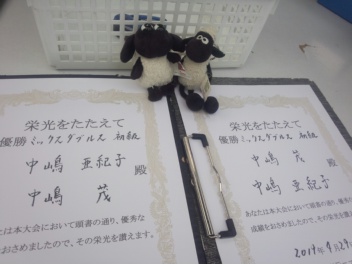 栄光をたたえて
優勝 ミックスダブルス 初級
中嶋 亜紀子 殿
中嶋 茂
は本大会において頭書の通り、優秀な
おさめましたので、その栄光を讃えます。
栄光をたたえて
優勝 ミックスダブルス 初級
中嶋 茂 殿
中嶋 亜紀子
あなたは本大会において頭書の通り、
成績をおさめましたので、その栄光を